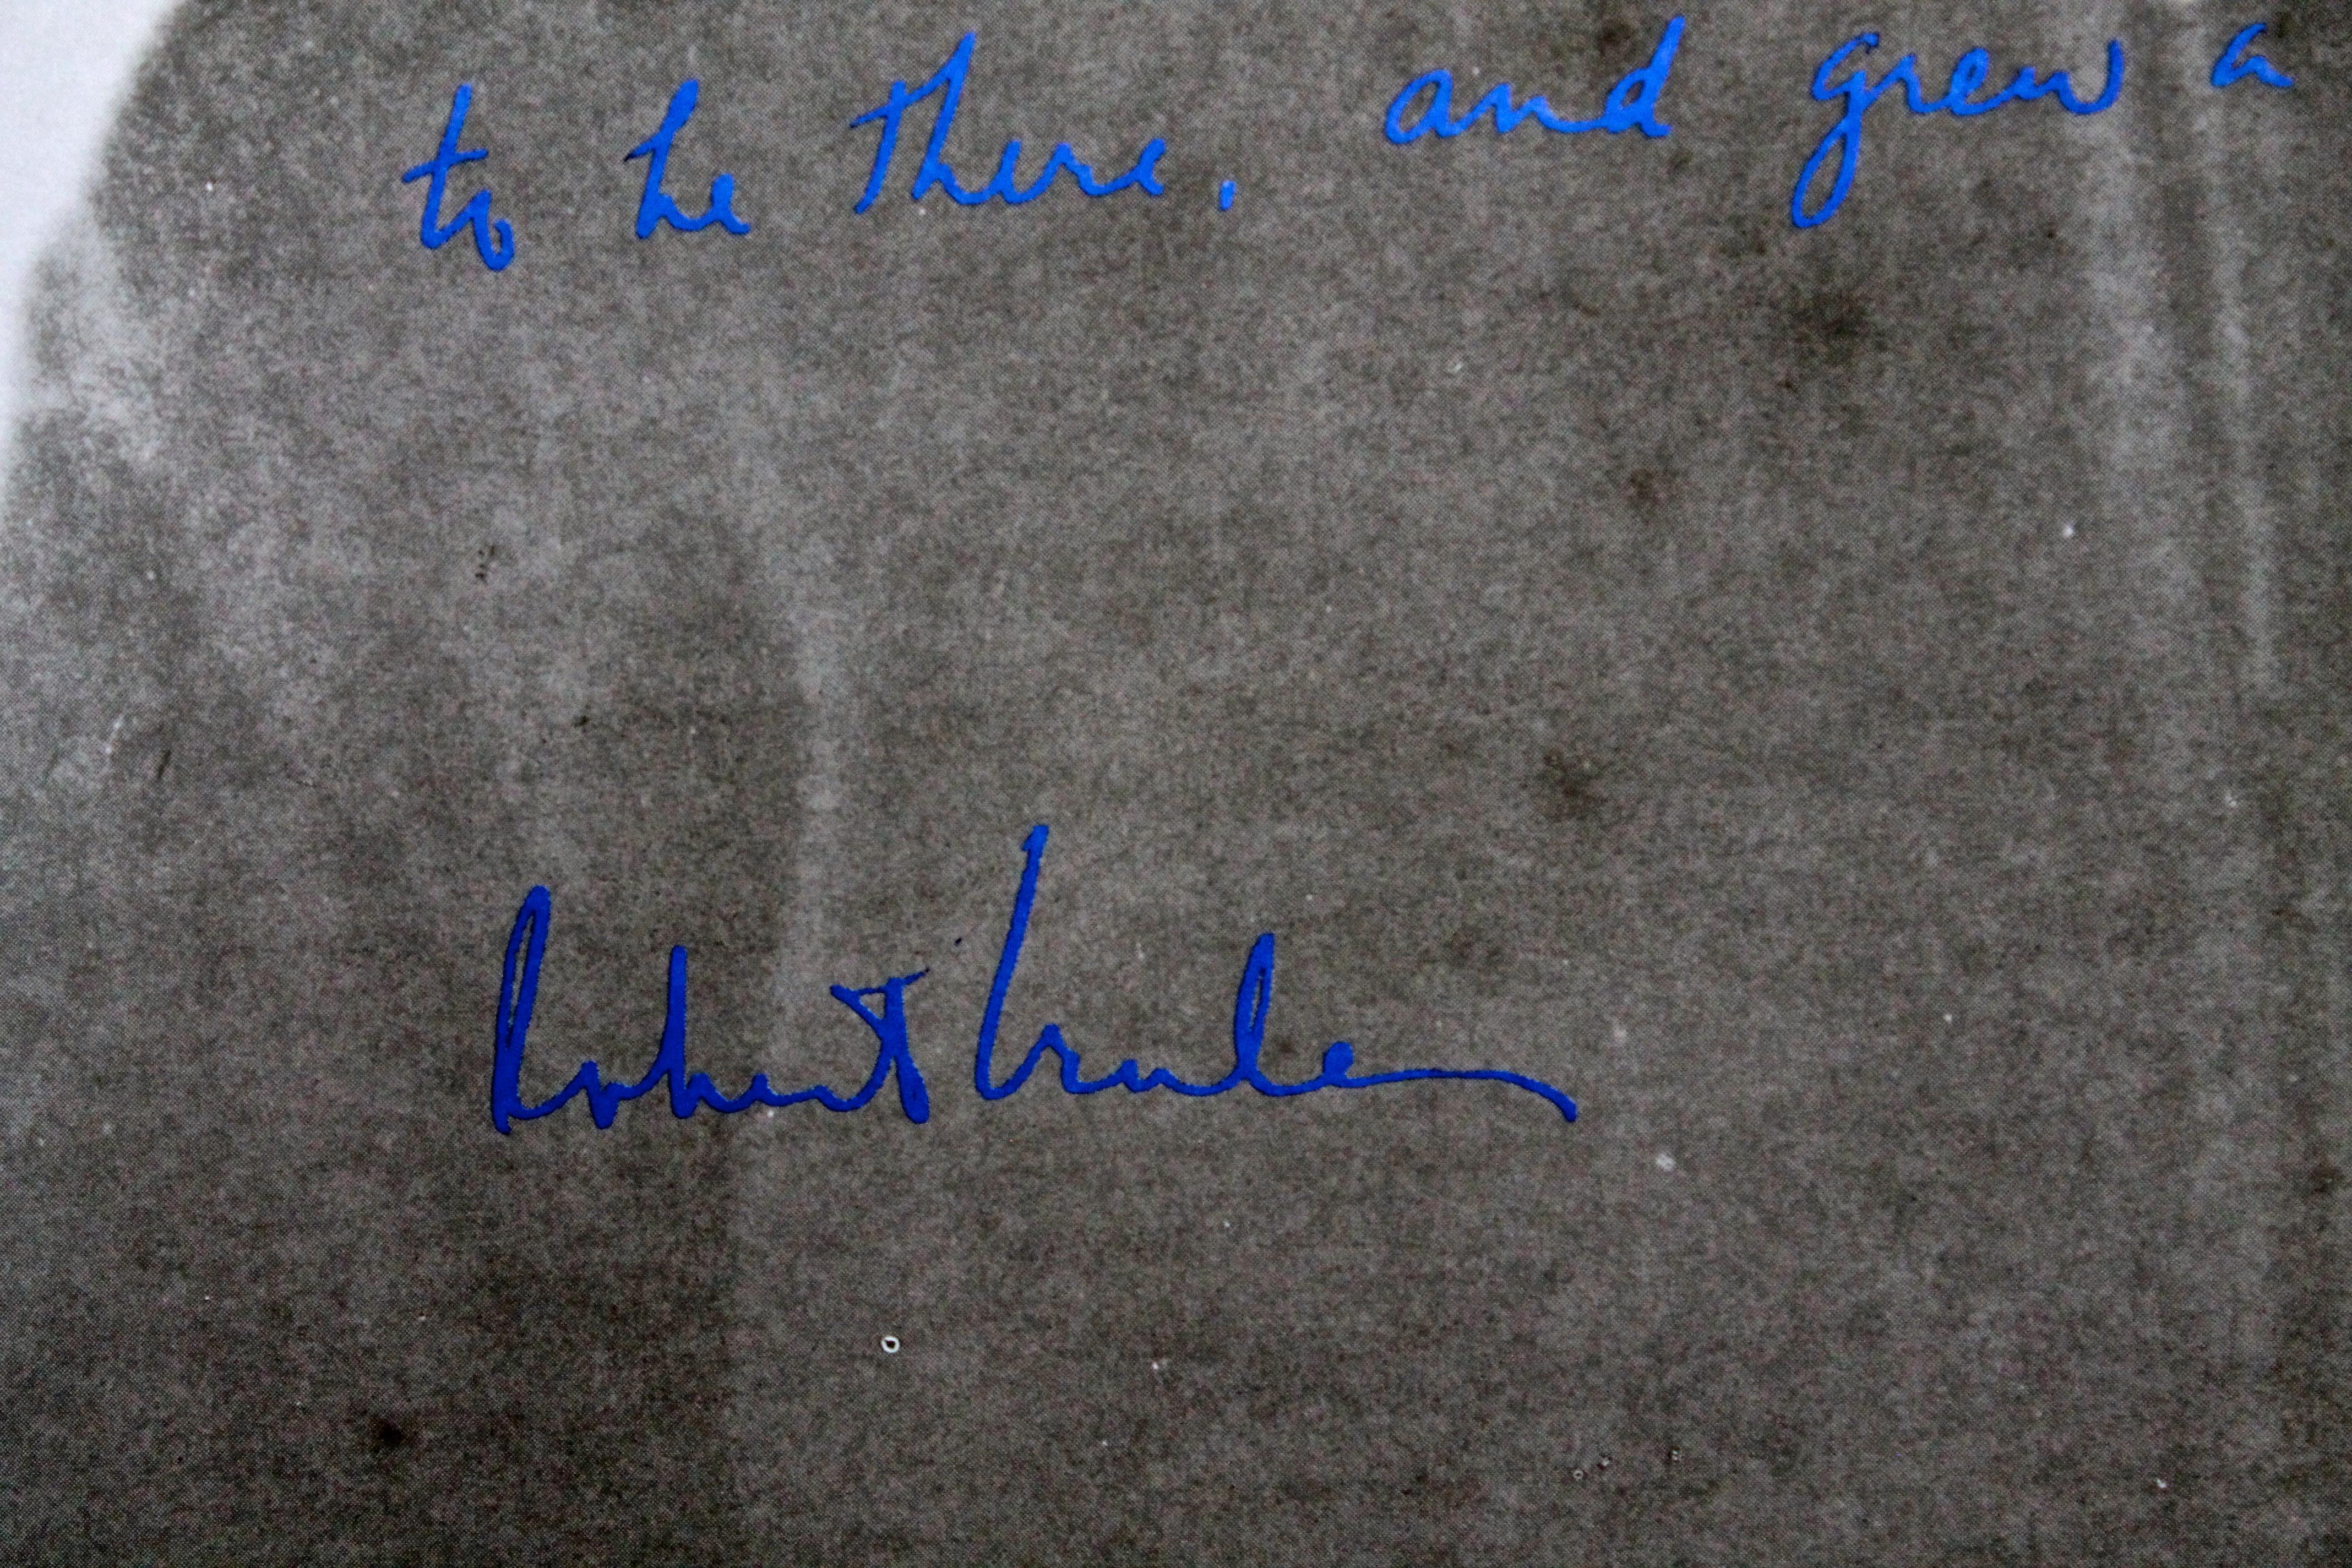 to be there, and grew a
Robert Creeley